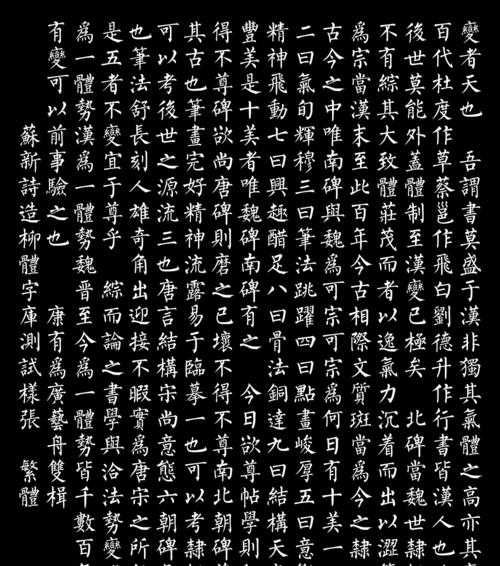 變者天也　吾謂書莫盛于漢非獨其氣體之高亦其
百代杜度作草蔡邕作飛白劉德升作行書皆漢人也
後世莫能外蓋體制至漢變已極矣　北碑當魏世隸
不有綜其大致體莊茂而者以逸氣力沉着而出以澀
爲宗當漢末至此百年今古相際文質斑當爲今之隸
古今之中唯南碑與魏爲可宗可宗爲何日有十美一
二曰氣旬輝穆三曰筆法跳躍四曰點畫峻厚五曰意
精神飛動七曰興趣醋足八曰骨法銅達九曰結構天
豐美是十美者唯魏碑南碑有之　今日欲尊帖學則
得不尊碑欲尚唐碑則磨之已壞不得不尊南北朝碑
其古也筆畫完好精神流露易于臨摹一也可以考隸
可以考後世之源流三也唐言結構宋尚意態六朝碑
也筆法舒長刻人雄奇角出迎接不暇實爲唐宋之所
是五者不變宜于尊乎　綜而論之書學與洽法勢變
爲一體勢漢爲一體勢魏晋至今爲一體勢皆千數百
有變可以前事驗之也　康有爲廣藝舟雙楫
蘇新詩造柳體字庫測試樣張　繁體